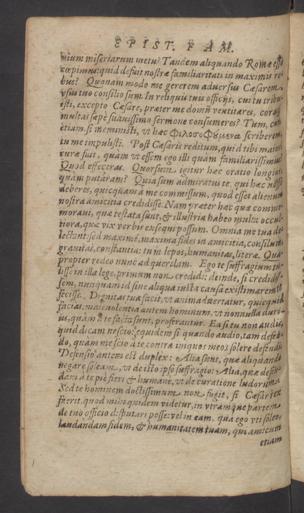 EPIST. FAM.
nium miseriarum metu? Tandem aliquando Romæ esse
cœpimus quid defuit nostræ familiaritati in maximis re
bus? Quonam modo me gererem aduersus Cæsarem,
usus tuo consilio sum. In reliquis tuis officijs, cui tu tribu
isti, excepto Cæsare, præter me domũ ventitares, horas
multas sæpe suauissimo sermone consumeres? Tum, cum
etiam, si meministi, ut hæc Φιλοσοφέμενα scriberem,
tu me impulisti. Post Cæsaris reditum, quid tibi maiori
curæ fuit, quam ut essem ego illi quàm familiarissimus?
Quod effeceras. Quorsum igitur hæc oratio longior,
quàm putaram? Quia sum admiratus te, qui hæc nosse
deberes, quicquam à me commissum, quod esset alienum
nostra amicitia credidisse. Nam præter hæc quæ comme
moraui, quæ testata sunt, & illustria habeo multa occul
tiora, quæ vix verbis exsequi possum. Omnia me tua de
lectant: sed maximè, maxima fides in amicitia, consilium,
grauitas, constantia: tum lepos, humanitas, literæ. Quá
propter redeo nunc ad querelam. Ego te suffragium tu
lisse in illa lege, primùm non credidi: deinde, si credidis
sem, nunquam id sine aliqua iusta causa existimarem te
fecisse. Dignitas tua facit, ut animaduertatur, quicquid
facias: maleuolentia autem hominum, ut nonnulla duriùs,
quàm à te facta sunt, proferantur. Ea si tu non audis,
quid dicam nescio. equidem si quando audio, tam defen
do, quàm me scio à te contra iniquos meos solere defendi.
Defensio autem est duplex: Alia sunt, quæ aliquando
negare soleam, ut de isto ipso suffragio: Alia, quæ defen
dam à te piè fieri & humanè, ut de curatione ludorum.
Sed te hominem doctissimum non fugit, si Cæsar rex
fuerit, quod mihi quidem videtur, in vtramque partem
de tuo officio disputari posse: vel in eam, qua ego vti soleo,
laudandam fidem, & humanitatem tuam, qui amicum
etiam